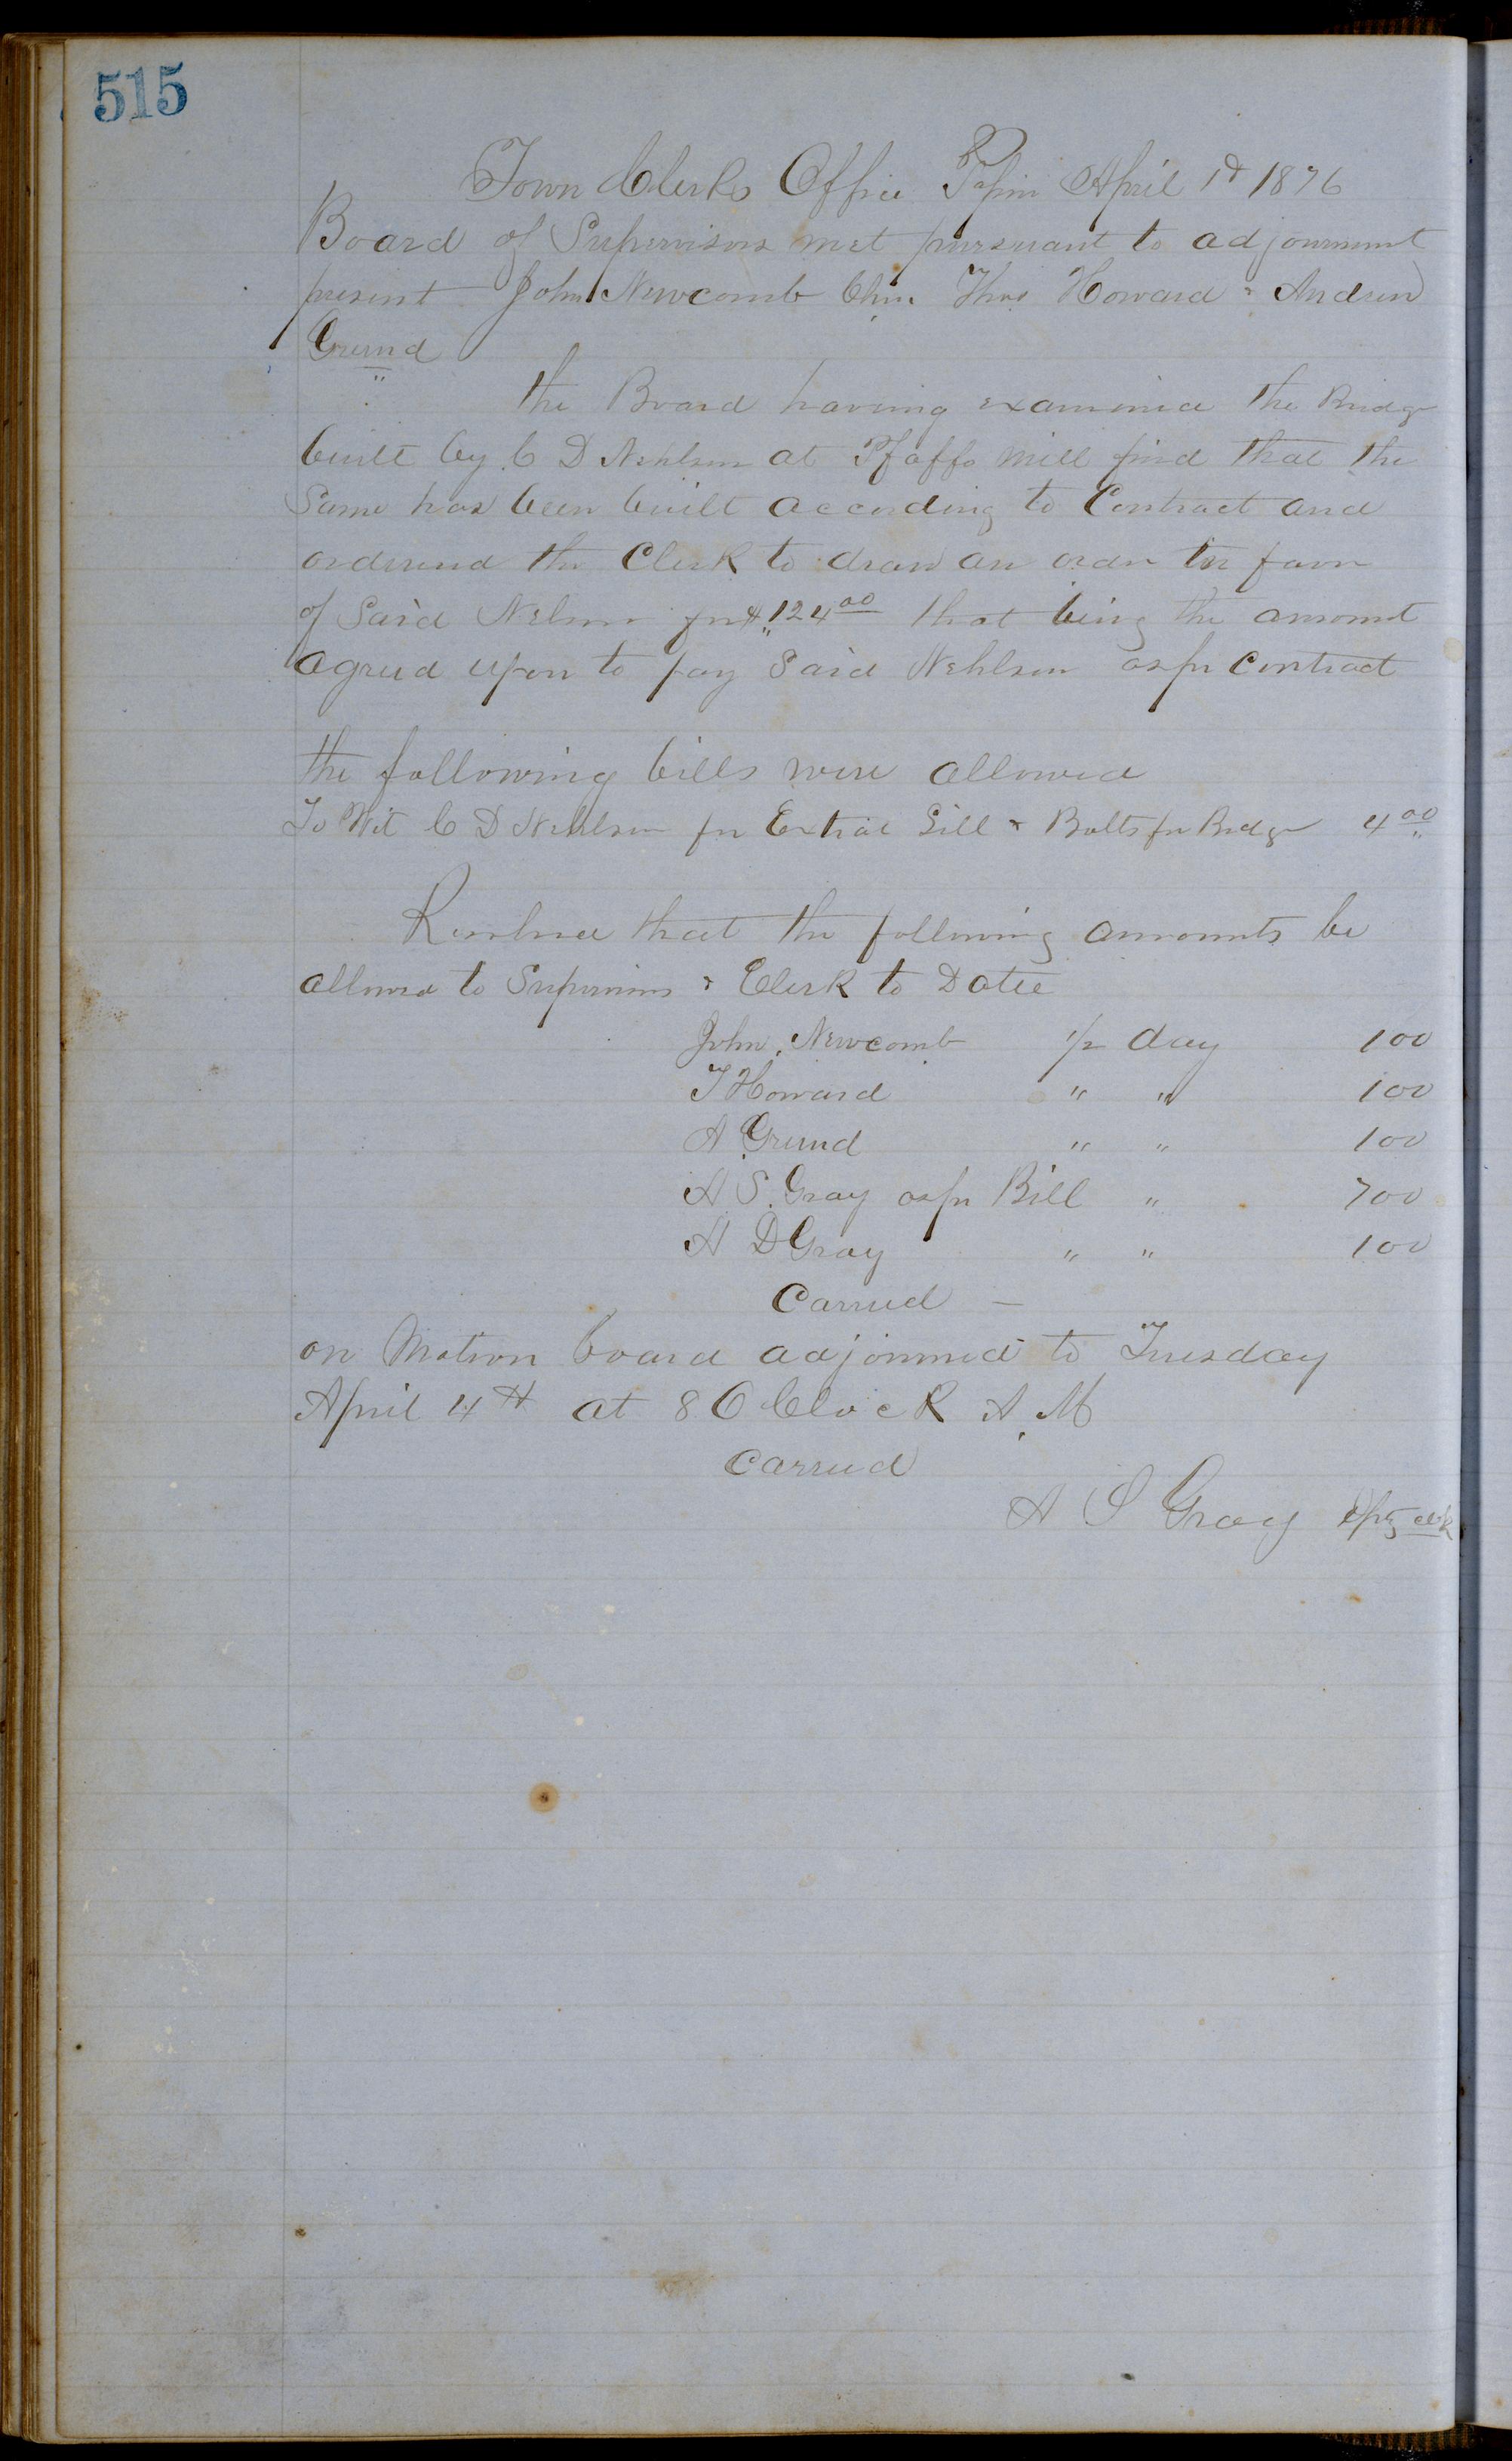 515
Town Clerks Office Pepin April 1st 1876
Board of Supervisors met pursuant to adjournment
present John Newcomb Chm. Thos Howard & Andrew
Grund
the Board having examined the Bridge
built by C D Nehlsen at Pfaffs Mill find that the
Same has been built according to Contract and
ordered the Clerk to draw an order in favor
of Said Nelsen for $124 00 that being the amount
agreed upon to pay Said Nehlsen as per Contract
the following bills were allowed
To Wit C D Nehlsen for Extrae Sill & Bolts for Bridge 4 00
Resolved that the following amounts be
allowed to Supervisors & Clerk to Date
John Newcomb 1/2 day 1 00
T Howard " " 1 00
A Grund " " 1 00
A S Gray as per Bill " 7 00
A D Gray " " 1 00
Carried —
on Motion board adjourned to Tuesday
April 4th at 8 O Clock A.M
Carried
A S Gray Dpty clk